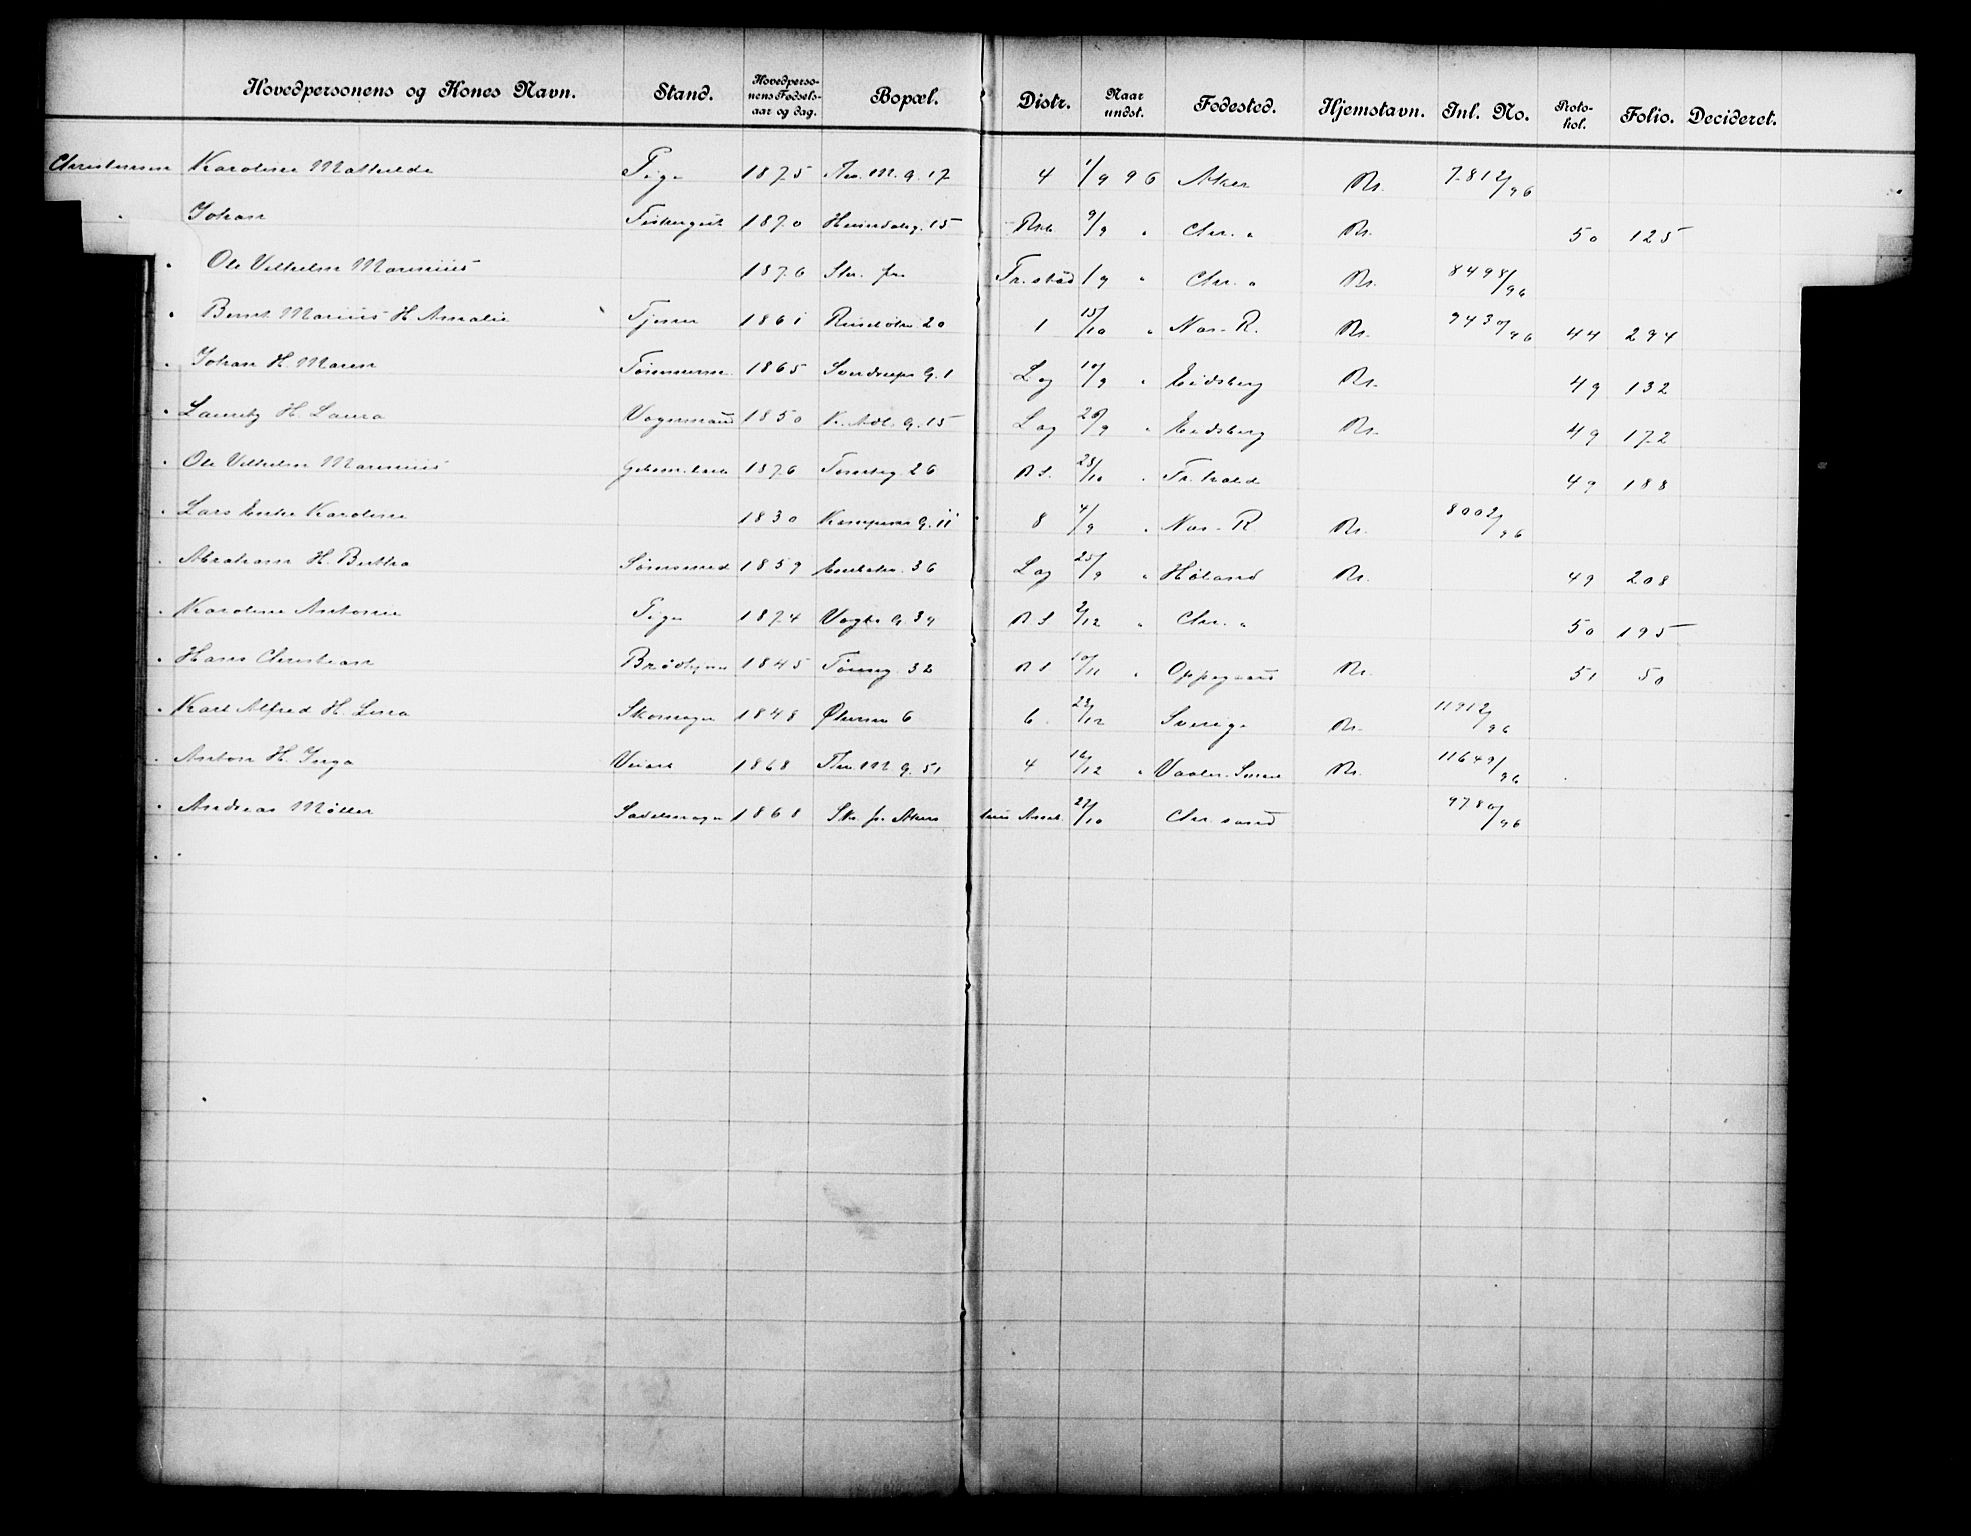 Hovedpersonens og Kones Navn. Stand. Hovedpersonens Fødselsaar og dag. Bopæl. Distr. Naar undst. Fødested. Hjemstavn. Inl. No. Protokol. Folio. Decideret.
Christensen Karoline Mathilde Pige 1875 M. g. 17 4 1/9 96 Aker Kr. 7812/96
" Johan 1870 15 9/9 " Chr. " Kr. 50 125
" Ole Vilhelm Marinius 1876 Str. fr. Fr.stad 1/9 " Chr. " Kr. 8498/96
" Bernt Marius H Amalie Tjener 1861 20 1 15/10 " Nes-R. Kr. 9430/96 44 294
" Johan H. Maren Tømmerm. 1865 Sverdrups G. 1 Lag 10/9 " Eidsberg Kr. 49 132
" Lauritz H. Laura Vognmand 1850 K. Adl. G. 15 Lag 20/9 " Eidsberg Kr. 49 172
" Ole Vilhelm Marinius 1876 Tomteg. 26 R S. 28/10 " Fr.hald 49 188
" Lars Enke Karoline 1830 G. 11 8 4/9 " Nes-R Kr. 8002/96
" Abraham H. Berthe Sømsmed 1859 36 Lag 25/9 " Høland Kr. 49 208
" Karoline Antonie Pige 1874 Vogts G 39 R S 2/12 " Chr. " 50 195
" Hans Christian 1845 32 R S 10/11 " Oppegaard Kr. 51 50
" Karl Alfred H. Lina Skomager 1848 6 6 22/12 Sverige Kr. 11912/96
" Anton H. Inga 1868 Thv. M. G. 51 4 16/12 " Vaaler Smaal Kr. 11649/96
" Andreas Møller Sadelmager 1868 Str. fr. Akers hus Anst. 27/10 Chr. sand 9780/96
" "